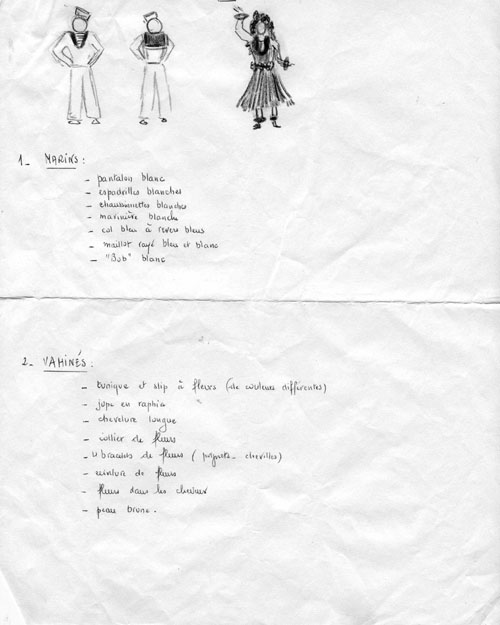 1- MARINS :
- pantalon blanc
- espadrilles blanches
- chaussettes blanches
- marinière blanche
- col bleu à revers bleus
- maillot rayé bleu et blanc
- "Bob" blanc
2- VAHINÉS :
- tunique et slip à fleurs (de couleurs différentes)
- jupe en raphia
- chevelure longue
- collier de fleurs
- 4 bracelets de fleurs ( poignets - chevilles)
- ceinture de fleurs
- fleurs dans les cheveux
- peau brune.